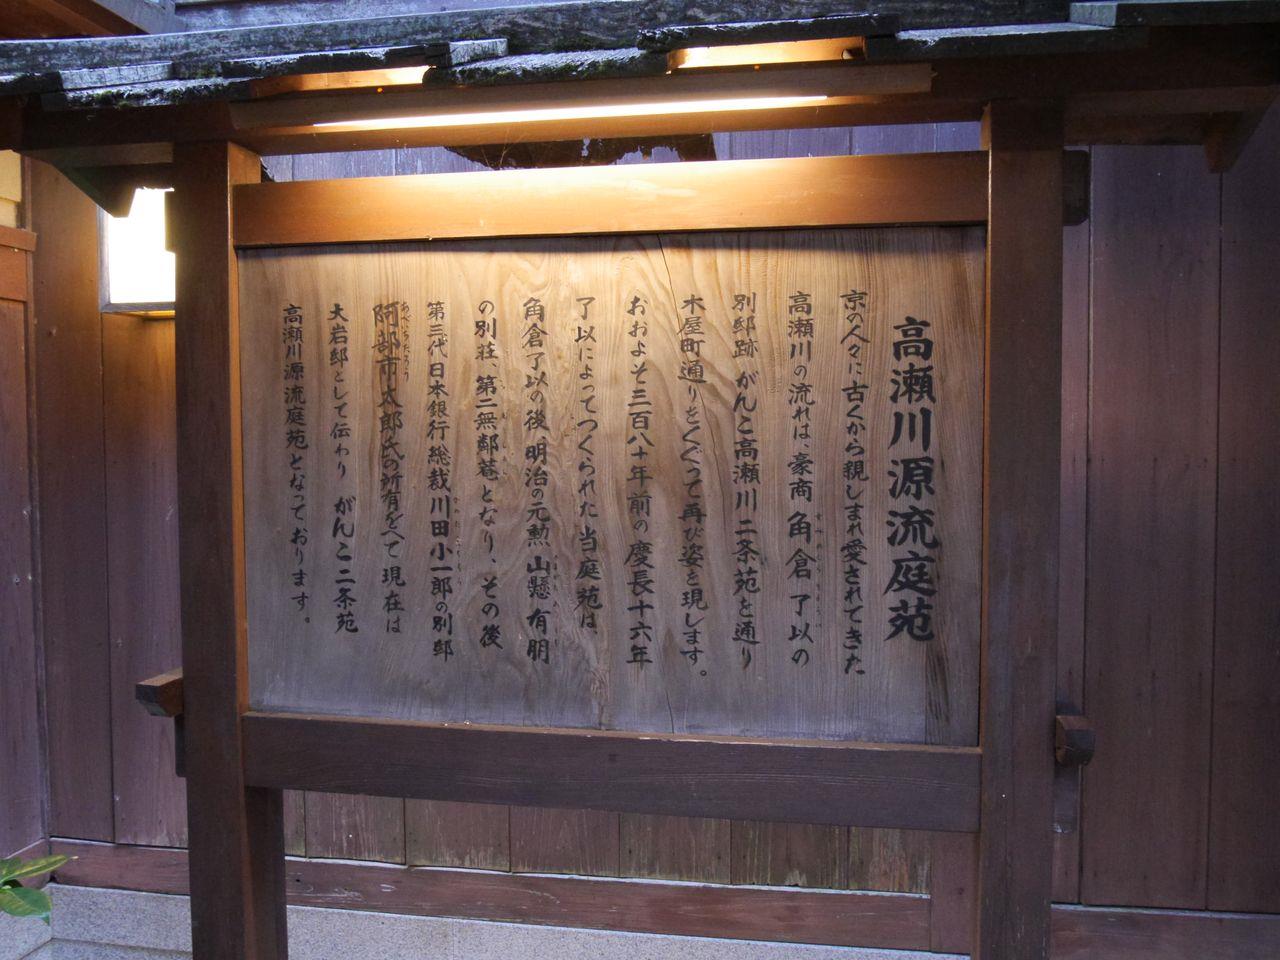 高瀬川源流庭苑
京の人々に古くから親しまれ愛されてきた
高瀬川の流れは、豪商 角倉了以の
別邸跡 がんこ高瀬川二条苑を通り
木屋町通りをくぐって再び姿を現します。
おおよそ三百八十年前の慶長十六年
了以によってつくられた当庭苑は、
角倉了以の後、明治の元勲 山懸有朋
の別荘、第二無鄰菴となり、その後
第三代日本銀行総裁川田小一郎の別邸
阿部市太郎氏の所有をへて現在は
あべいちたろう
大岩邸として伝わり がんこ二条苑
高瀬川源流庭苑となっております。